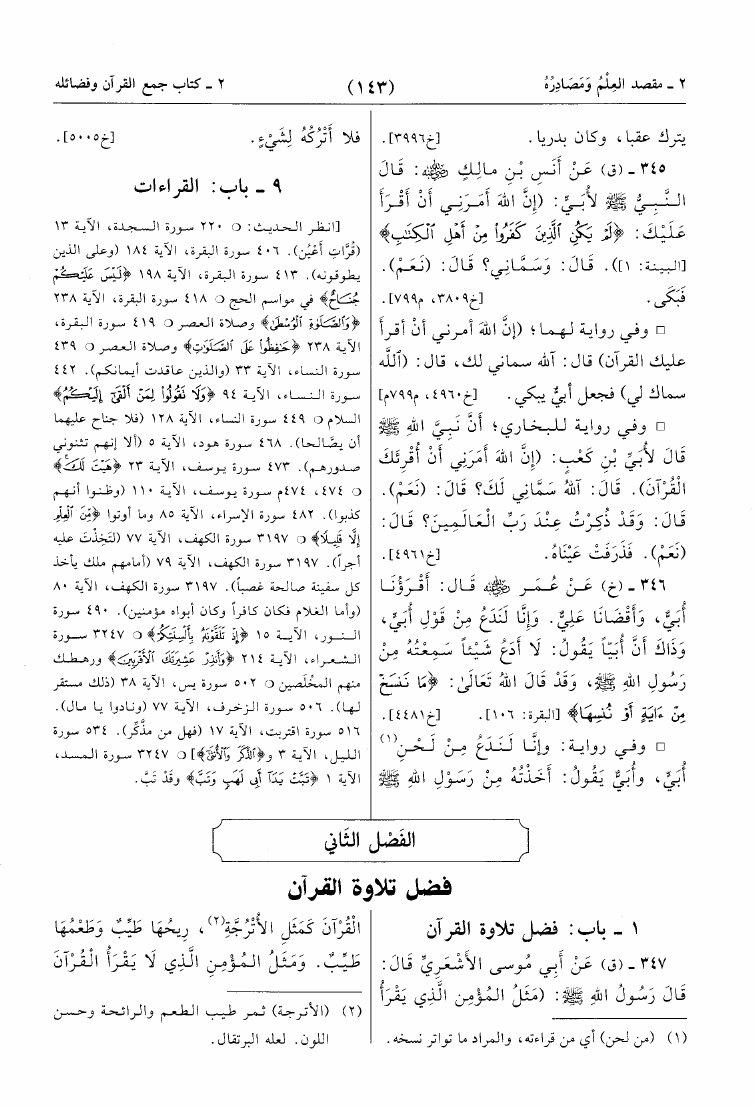 ٢ ـ مقصد العِلْمُ وَمَصَادِرُهُ (١٤٣) ٢ ـ كتاب جمع القرآن وفضائله
يترك عقبا، وكان بدريا. [خ٣٩٩٦].
٣٤٥ ـ (ق) عَنْ أَنَسِ بْنِ مالِكٍ ﷺ: قَالَ
النَّبِيُّ ﷺ لأُبَيٍّ: (إِنَّ اللهَ أَمَرَنِي أَنْ أَقْرَأَ
عَلَيْكَ: ﴿لَمْ يَكُنِ ٱلَّذِينَ كَفَرُوا۟ مِنْ أَهْلِ ٱلْكِتَٰبِ﴾
[البينة: ١]). قَالَ: وَسَمَّانِي؟ قَالَ: (نَعَمْ).
فَبَكَى. [خ٣٨٠٩، م٧٩٩].
□ وفي رواية لهما؛ (إِنَّ اللهَ أمرني أنْ أقرأ
عليك القرآن) قال: آلله سماني لك، قال: (اللَّه
سماك لي) فجعل أبيٌّ يبكي. [خ٤٩٦٠، م٧٩٩م]
□ وفي رواية للبخاري؛ أَنَّ نَبِيَّ اللهِ ﷺ
قَالَ لأُبَيِّ بْنِ كَعْبٍ: (إِنَّ اللهَ أَمَرَنِي أَنْ أُقْرِئَكَ
القُرْآنَ). قَالَ: آللهُ سَمَّانِي لَكَ؟ قَالَ: (نَعَمْ).
قَالَ: وَقَدْ ذُكِرْتُ عِنْدَ رَبِّ الْعَالَمِينَ؟ قَالَ:
(نَعَمْ). فَذَرَفَتْ عَيْنَاهُ. [خ٤٩٦١].
٣٤٦ ـ (خ) عَنْ عُمَر ﷺ قَالَ: أَقْرَؤُنَا
أُبَيٌّ، وَأَقْضَانَا عَلِيٌّ. وَإِنَّا لَنَدَعُ مِنْ قَوْلِ أُبَيٍّ،
وَذَاكَ أَنَّ أُبَيّاً يَقُولُ: لَا أَدَعُ شَيْئاً سَمِعْتُهُ مِنْ
رَسُولِ اللهِ ﷺ، وَقَدْ قَالَ اللهُ تَعَالَىٰ: ﴿مَا نَنسَخْ
مِنْ ءَايَةٍ أَوْ نُنسِهَا﴾ [البقرة: ١٠٦]. [خ٤٤٨١].
□ وفي رواية: وإِنَّا لَنَدَعُ مِنْ لَحْنِ(١)
أُبَيٍّ، وأُبَيٌّ يَقُولُ: أَخَذْتُهُ مِنْ رَسَوْلِ اللهِ ﷺ
فلا أَتْرُكُهُ لِشَيْءٍ. [خ٥٠٠٥].
٩ ـ باب: القراءات
[انظر الحديث: ○ ٢٢٠ سورة السجدة، الآية ١٣
(قُرَّاتِ أَعْيُن). ٤٠٦ سورة البقرة، الآية ١٨٤ (وعلى الذين
يطوقونه). ٤١٣ سورة البقرة، الآية ١٩٨ ﴿لَيْسَ عَلَيْكُمْ
جُنَاحٌ﴾ في مواسم الحج ○ ٤١٨ سورة البقرة، الآية ٢٣٨
﴿وَٱلصَّلَوٰةِ ٱلْوُسْطَىٰ﴾ وصلاة العصر ○ ٤١٩ سورة البقرة،
الآية ٢٣٨ ﴿حَٰفِظُوا۟ عَلَى ٱلصَّلَوَٰتِ﴾ وصلاة العصر ○ ٤٣٩
سورة النساء، الآية ٣٣ (والذين عاقدت أيمانكم). ٤٤٢
سورة النساء، الآية ٩٤ ﴿وَلَا تَقُولُوا۟ لِمَنْ أَلْقَىٰٓ إِلَيْكُمُ﴾
السلام ○ ٤٤٩ سورة النساء، الآية ١٢٨ (فلا جناح عليهما
أن يصَّالحا). ٤٦٨ سورة هود، الآية ٥ (ألا إنهم تثنوني
صدورهم). ٤٧٣ سورة يوسف، الآية ٢٣ ﴿هَيْتَ لَكَ﴾
○ ٤٧٤، ٤٧٤م سورة يوسف، الآية ١١٠ (وظنوا أنهم
كذبوا). ٤٨٢ سورة الإسراء، الآية ٨٥ وما أوتوا ﴿مِّنَ ٱلْعِلْمِ
إِلَّا قَلِيلًا﴾ ○ ٣١٩٧ سورة الكهف، الآية ٧٧ (لتَخِذْتَ عليه
أجراً). ٣١٩٧ سورة الكهف، الآية ٧٩ (أمامهم ملك يأخذ
كل سفينة صالحة غصباً). ٣١٩٧ سورة الكهف، الآية ٨٠
(وأما الغلام فكان كافراً وكان أبواه مؤمنين). ٤٩٠ سورة
النور، الآية ١٥ ﴿إِذْ تَلَقَّوْنَهُۥ بِأَلْسِنَتِكُمْ﴾ ○ ٣٢٤٧ سورة
الشعراء، الآية ٢١٤ ﴿وَأَنذِرْ عَشِيرَتَكَ ٱلْأَقْرَبِينَ﴾ ورهطك
منهم المخْلَصين ○ ٥٠٢ سورة يس، الآية ٣٨ (ذلك مستقر
لها). ٥٠٦ سورة الزخرف، الآية ٧٧ (ونادوا يا مال).
٥١٦ سورة اقتربت، الآية ١٧ (فهل من مذَّكِر). ٥٣٤ سورة
الليل، الآية ٣ و﴿ٱلذَّكَرَ وَٱلْأُنثَىٰٓ﴾] ○ ٣٢٤٧ سورة المسد،
الآية ١ ﴿تَبَّتْ يَدَآ أَبِى لَهَبٍ وَتَبَّ﴾ وقَدْ تَبَّ.
الفَصْل الثَّانِي
فضل تلاوة القرآن
١ ـ باب: فضل تلاوة القرآن
٣٤٧ ـ (ق) عَنْ أَبِي مُوسى الأَشْعَرِيِّ قَالَ:
قَالَ رَسُولُ اللهِ ﷺ: (مَثَلُ المُؤْمِنِ الَّذِي يَقْرَأُ
القُرْآنَ كَمَثَلِ الأُتْرُجَّةِ(٢)، رِيحُهَا طَيِّبٌ وَطَعْمُهَا
طَيِّبٌ. وَمَثَلُ المُؤْمِنِ الَّذِي لَا يَقْرَأُ الْقُرْآنَ
(١) (من لحن) أي من قراءته، والمراد ما تواتر نسخه.
(٢) (الأترجة) ثمر طيب الطعم والرائحة وحسن
اللون. لعله البرتقال.